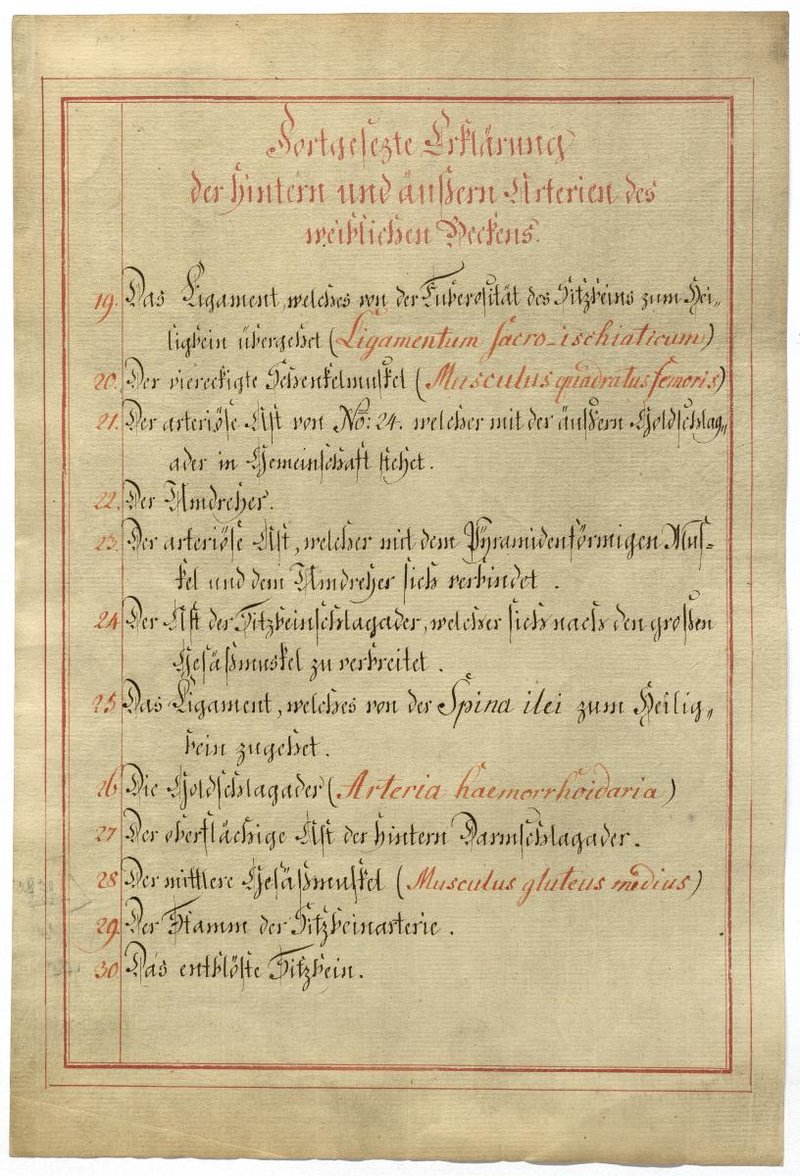 Fortgesezte Erklärung
der hintern und äußern Arterien des
weiblichen Beckens.
19. Das Ligament, welches von der Tuberosität des Sitzbeins zum Hei„
ligbein übergehet (Ligamentum sacro-ischiaticum)
20. Der viereckigte Schenkelmuskel (Musculus quadratus femoris)
21. Der arteriöse Ast von No: 24. welcher mit der äußern Goldschlag„
ader in Gemeinschaft stehet.
22. Der Umdreher.
23. Der arteriöse Ast, welcher mit dem Pyramidenförmigen Mus=
kel und dem Umdreher sich verbindet .
24 Der Ast der Sitzbeinschlagader, welcher sich nach den großen
Gesäßmuskel zu verbreitet .
25 Das Ligament, welches von der Spina ilei zum Heilig„
bein zugehet.
26 Die Goldschlagader (Arteria haemorrhoidaria)
27 Der oberflächige Ast der hintern Darmschlagader.
28 Der mittlere Gesäßmuskel (Musculus gluteus medius)
29. Der Stamm der Sitzbeinarterie .
30. Das entblöste Sitzbein.